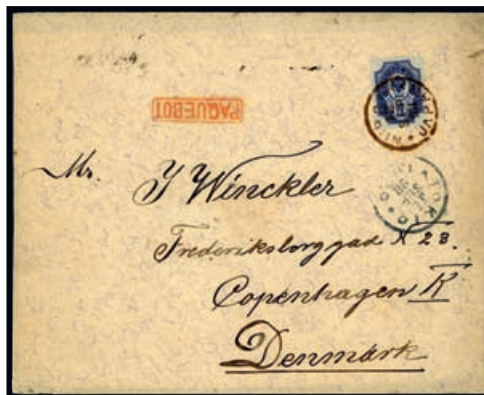 PAQUEBOT
JAPAN
Mr. J Winckler
TOKIO
Frederiksborggad N 28.
Copenhagen K
Denmark